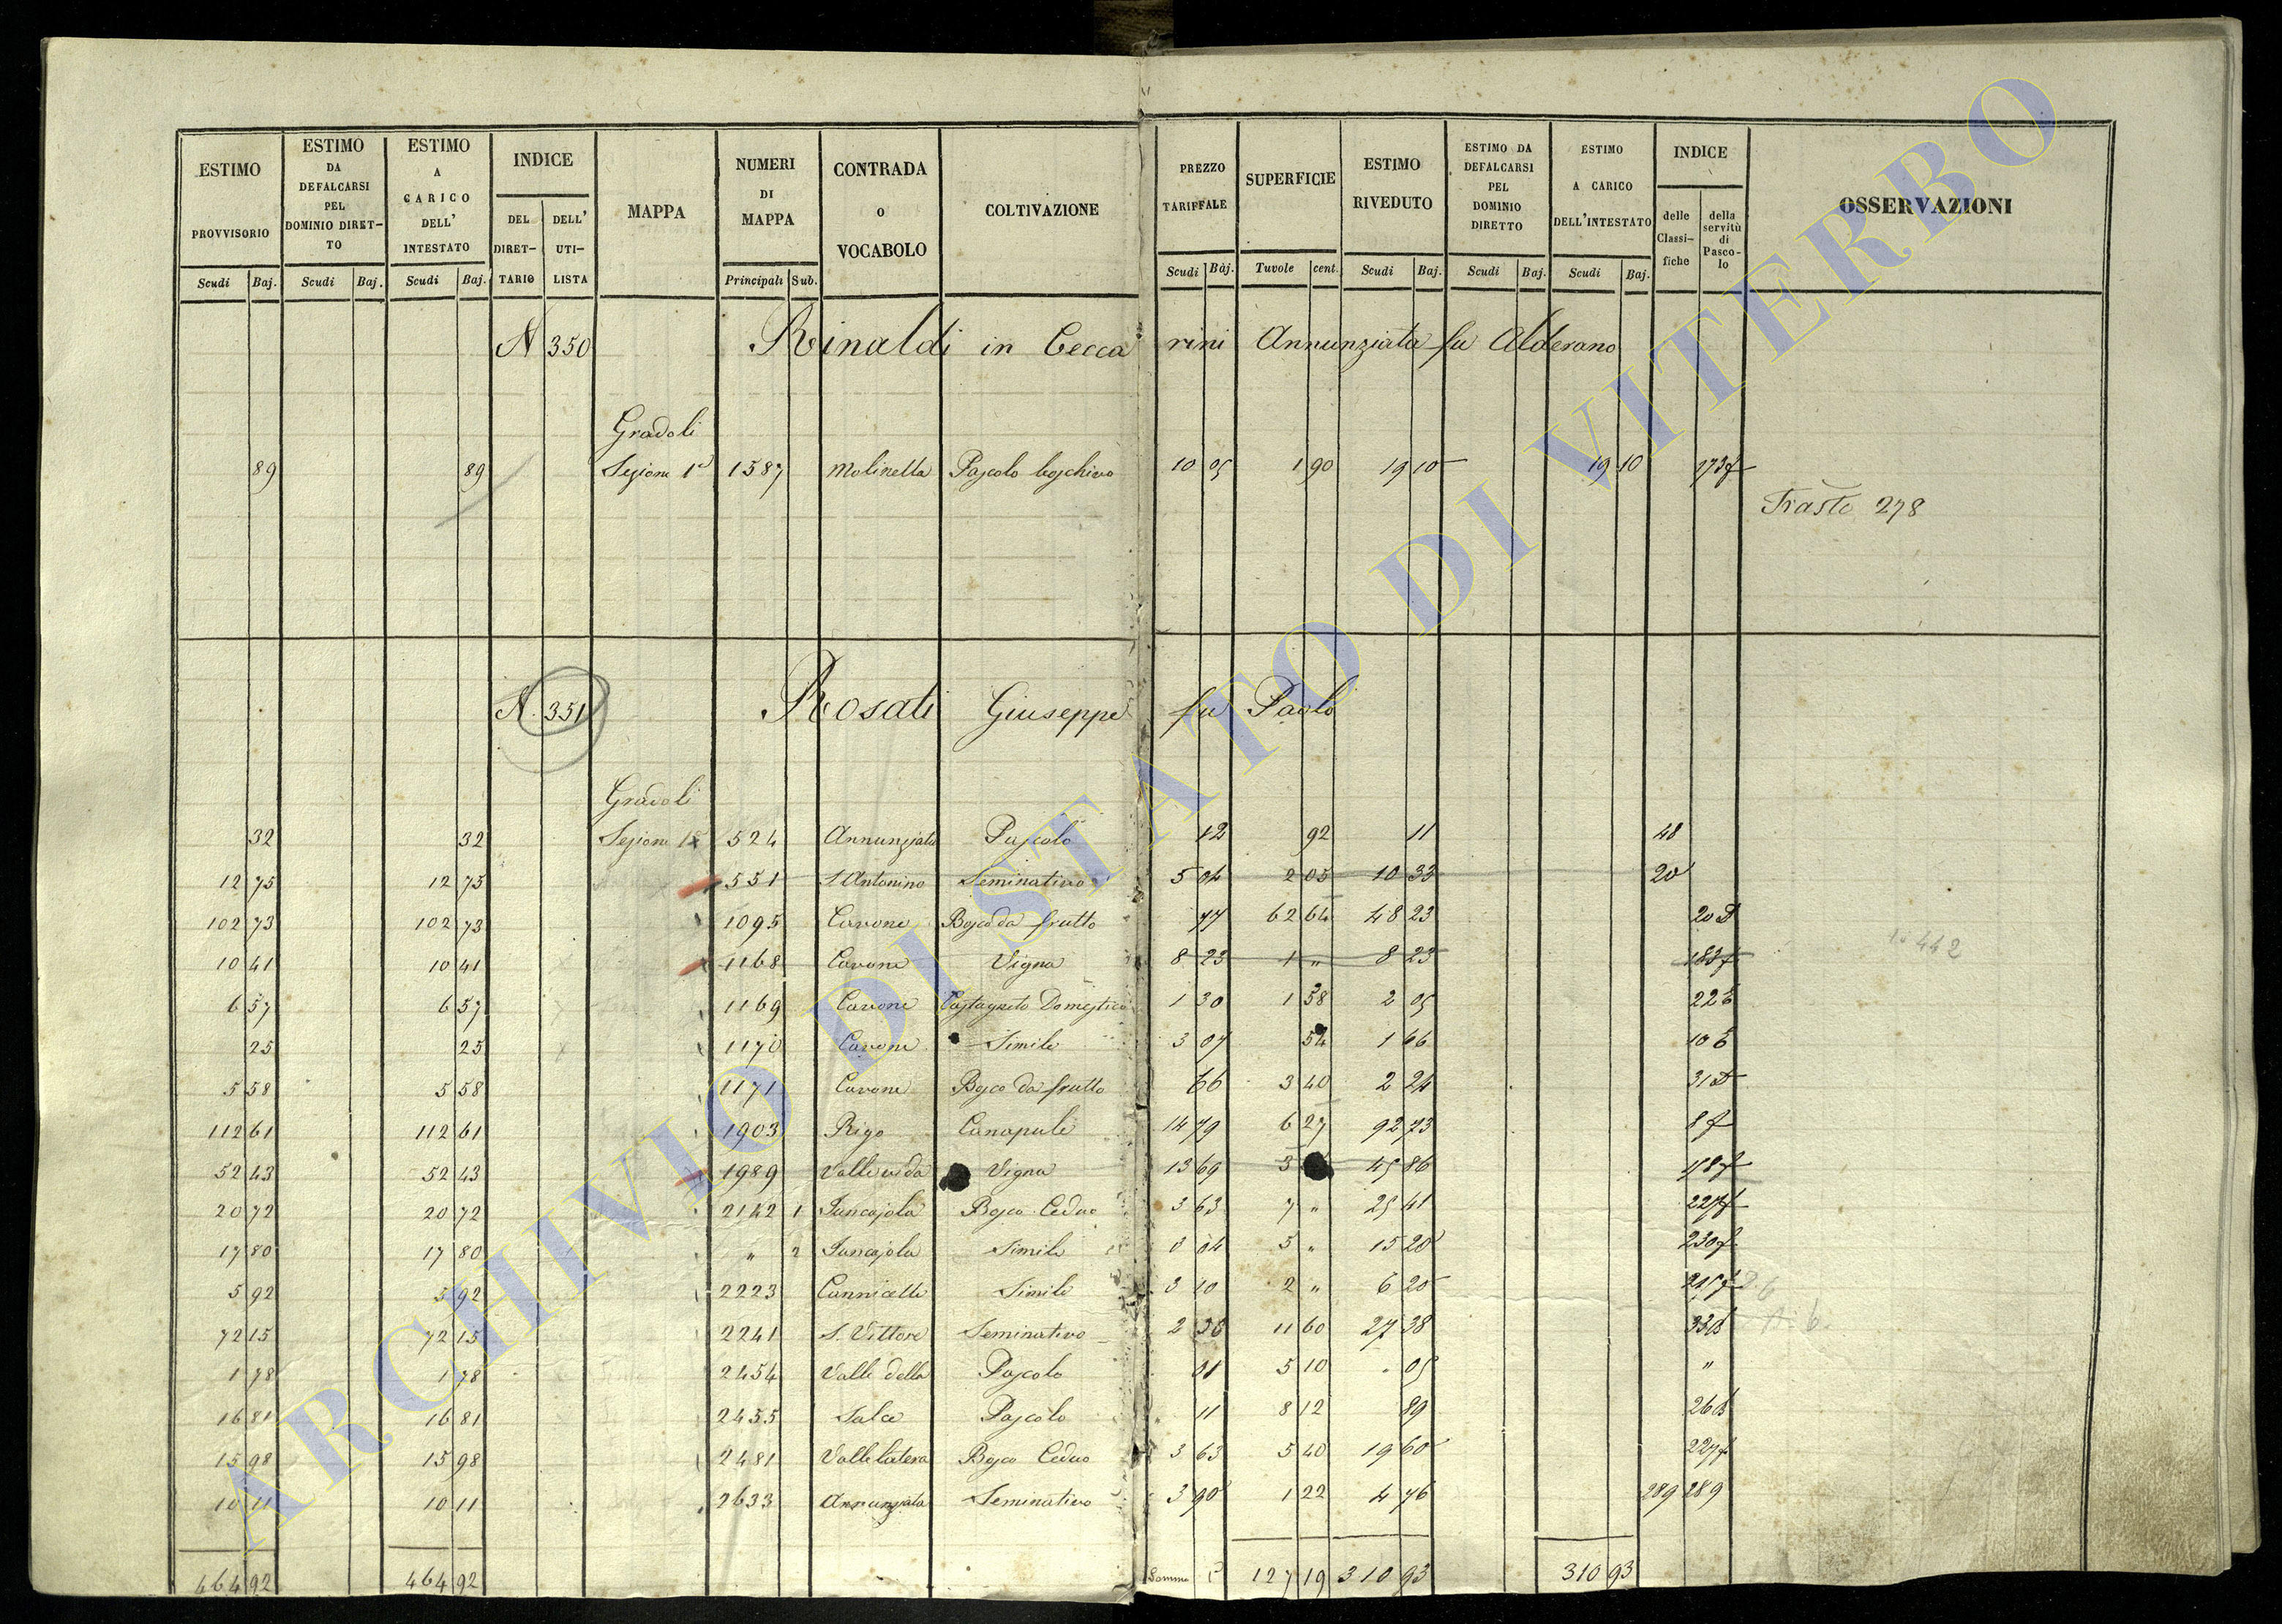 ESTIMO PROVVISORIO | ESTIMO DA DEFALCARSI PEL DOMINIO DIRETTO | ESTIMO A CARICO DELL' INTESTATO | INDICE | MAPPA | NUMERI DI MAPPA | CONTRADA O VOCABOLO | COLTIVAZIONE | PREZZO TARIFFALE | SUPERFICIE | ESTIMO RIVEDUTO | ESTIMO DA DEFALCARSI PEL DOMINIO DIRETTO | ESTIMO A CARICO DELL'INTESTATO | INDICE | OSSERVAZIONI
DEL DIRETTARIO | DELL' UTILISTA | delle Classifiche | della servitù di Pascolo
Scudi | Baj. | Scudi | Baj. | Scudi | Baj. | Principali | Sub. | Scudi | Baj. | Tavole | cent. | Scudi | Baj. | Scudi | Baj. | Scudi | Baj.
N 350 Rinaldi in Ceccarini Annunziata fu Alderano
Gradoli
89 | 89 | Sezione 1ª | 1587 | Molinella | Pascolo boschivo | 10 05 | 1 90 | 19 10 | 19 10 | 173f
Trasto 278
N. 351 Rosati Giuseppe fu Paolo
Gradoli
32 | 32 | Sezione 1ª | 524 | Annunziata | Pascolo | 12 | 92 | 11 | 48
12 75 | 12 75 | 551 | S Antonino | Seminativo | 5 04 | 2 05 | 10 33 | 20
102 73 | 102 73 | 1095 | Cavone | Bosco da frutto | 77 | 62 64 | 48 23 | 20 D
10 41 | 10 41 | 1168 | Cavone | Vigna | 8 23 | 1 " | 8 23 | 183f
442
6 57 | 6 57 | 1169 | Cavone | Castagneto Domestico | 1 30 | 1 58 | 2 05 | 22
25 | 25 | 1170 | Cavone | Simile | 3 07 | 54 | 1 66 | 10
5 58 | 5 58 | 1171 | Cavone | Bosco da frutto | 66 | 3 40 | 2 24 | 31 D
112 61 | 112 61 | 1903 | Rigo | Canapule | 14 79 | 6 27 | 92 73 | 8 f
52 43 | 52 43 | 1989 | Valle | Vigna | 13 69 | 3 | 45 86
20 72 | 20 72 | 2142 | 1 | Juncajola | Bosco Ceduo | 3 63 | 7 " | 25 41 | 227f
17 80 | 17 80 | " | 2 | Juncajola | Simile | 3 04 | 5 " | 15 20 | 230f
5 92 | 5 92 | 2223 | Cannicelle | Simile | 3 10 | 2 " | 6 20
72 15 | 72 15 | 2241 | S. Vittore | Seminativo | 2 36 | 11 60 | 27 38 | 33B
1 78 | 1 78 | 2454 | Valle della | Pascolo | 01 | 5 10 | 05 | "
16 81 | 16 81 | 2455 | Salce | Pascolo | 11 | 8 12 | 89 | 26B
15 98 | 15 98 | 2481 | Valle Latera | Bosco Ceduo | 3 63 | 5 40 | 19 60 | 227f
10 11 | 10 11 | 2633 | Annunziata | Seminativo | 3 90 | 1 22 | 4 76 | 289 289
464 92 | 464 92 | Somma | 127 19 | 310 93 | 310 93
ARCHIVIO DI STATO DI VITERBO